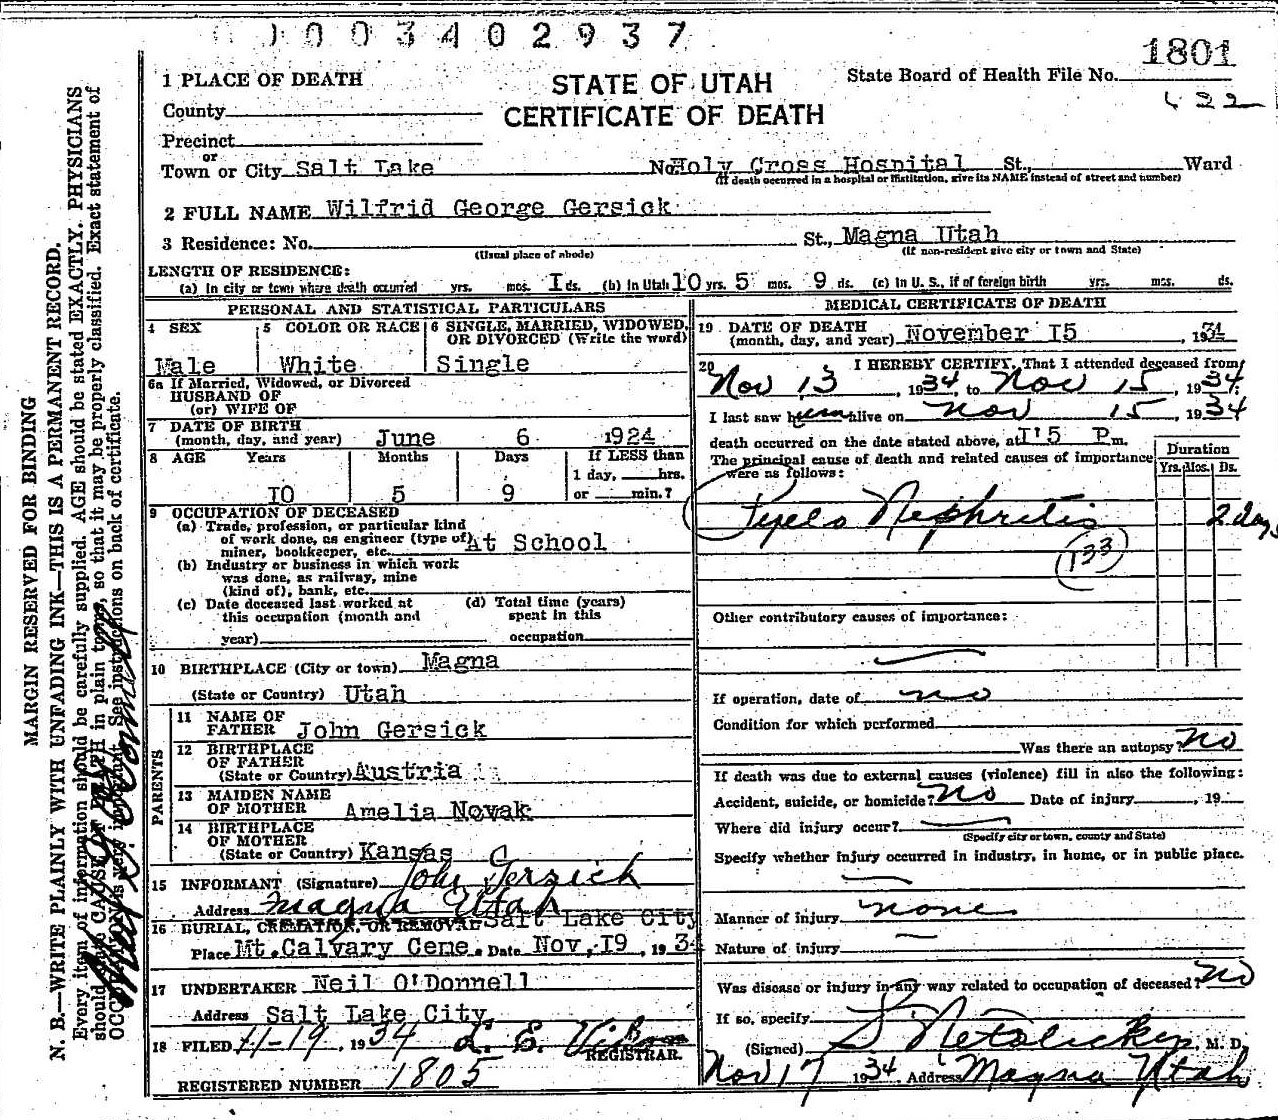 0 0 3 4 0 2 9 3 7
1801
1 PLACE OF DEATH
STATE OF UTAH
CERTIFICATE OF DEATH
State Board of Health File No.
County
Precinct
or
Town or City Salt Lake No. Holy Cross Hospital St., Ward
(If death occurred in a hospital or institution, give its NAME instead of street and number)
2 FULL NAME Wilfrid George Gersick
3 Residence: No. St., Magna Utah
(Usual place of abode) (If non-resident give city or town and State)
LENGTH OF RESIDENCE:
(a) In city or town where death occurred yrs. mos. I ds. (b) In Utah IO yrs. 5 mos. 9 ds. (c) In U. S., if of foreign birth yrs. mos. ds.
PERSONAL AND STATISTICAL PARTICULARS
4 SEX
Male
5 COLOR OR RACE
White
6 SINGLE, MARRIED, WIDOWED,
OR DIVORCED (Write the word)
Single
6a If Married, Widowed, or Divorced
HUSBAND OF
(or) WIFE OF
7 DATE OF BIRTH
(month, day, and year) June 6 1924
8 AGE Years Months Days If LESS than
1 day, hrs.
IO 5 9 or min.?
9 OCCUPATION OF DECEASED
(a) Trade, profession, or particular kind
of work done, as engineer (type of)
miner, bookkeeper, etc. At School
(b) Industry or business in which work
was done, as railway, mine
(kind of), bank, etc.
(c) Date deceased last worked at
this occupation (month and
year)
(d) Total time (years)
spent in this
occupation
10 BIRTHPLACE (City or town) Magna
(State or Country) Utah
PARENTS
11 NAME OF
FATHER John Gersick
12 BIRTHPLACE
OF FATHER
(State or Country) Austria
13 MAIDEN NAME
OF MOTHER Amelia Novak
14 BIRTHPLACE
OF MOTHER
(State or Country) Kansas
15 INFORMANT (Signature) John Gersick
Address Magna Utah
16 BURIAL, CREMATION, OR REMOVAL Salt Lake City
Place Mt. Calvary Ceme. Date Nov, I9, 1934
17 UNDERTAKER Neil O'Donnell
Address Salt Lake City,
18 FILED 11-19, 1934
REGISTRAR.
REGISTERED NUMBER 1805
MEDICAL CERTIFICATE OF DEATH
19 DATE OF DEATH
(month, day, and year) November I5, 1934
20 I HEREBY CERTIFY, That I attended deceased from
Nov 13, 1934, to Nov 15, 1934.
I last saw him alive on Nov 15, 1934
death occurred on the date stated above, at I'5 P m.
The principal cause of death and related causes of importance
were as follows:
Duration
Yrs. Mos. Ds.
Pyelo Nephritis 2 days
(133)
Other contributory causes of importance:
If operation, date of no
Condition for which performed
Was there an autopsy? No
If death was due to external causes (violence) fill in also the following:
Accident, suicide, or homicide? No Date of injury , 19
Where did injury occur?
(Specify city or town, county and State)
Specify whether injury occurred in industry, in home, or in public place.
Manner of injury none
Nature of injury
Was disease or injury in any way related to occupation of deceased? No
If so, specify
(Signed) M. D.
Nov 17 1934 Address Magna Utah
MARGIN RESERVED FOR BINDING
N. B.—WRITE PLAINLY WITH UNFADING INK—THIS IS A PERMANENT RECORD.
Every item of information should be carefully supplied. AGE should be stated EXACTLY. PHYSICIANS
should state CAUSE OF DEATH in plain terms, so that it may be properly classified. Exact statement of
OCCUPATION is very important. See instructions on back of certificate.